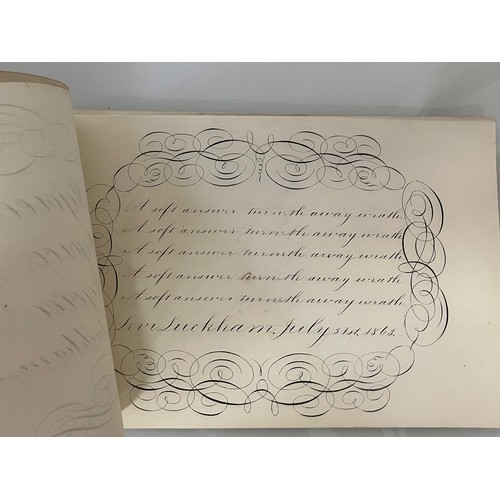 A soft answer turneth away wrath
A soft answer turneth away wrath
A soft answer turneth away wrath
A soft answer turneth away wrath
A soft answer turneth away wrath
Levi Luckham, July 31st, 1863.